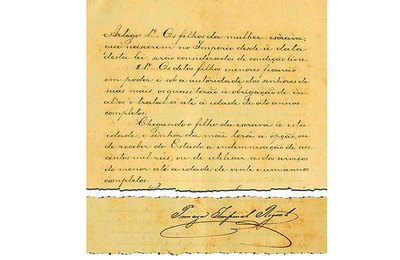 Artigo 1º Os filhos da mulher escrava,
que nascerem no Imperio desde a data
desta lei, serão considerados de condição livre.
§ 1º Os ditos filhos menores ficarão
em poder e sob a autoridade dos senhores de
suas mais, os quaes terão a obrigação de cri
al-os e tratal-os até a idade de oito annos
completos.
Chegando o filho da escrava a esta
idade, o senhor da mãe terá a opção, ou
de receber do Estado a indemnisação de seis
centos mil reis, ou de utilisar-se dos serviços
do menor até a idade de vinte e um annos
completos.
Princeza Imperial Regente